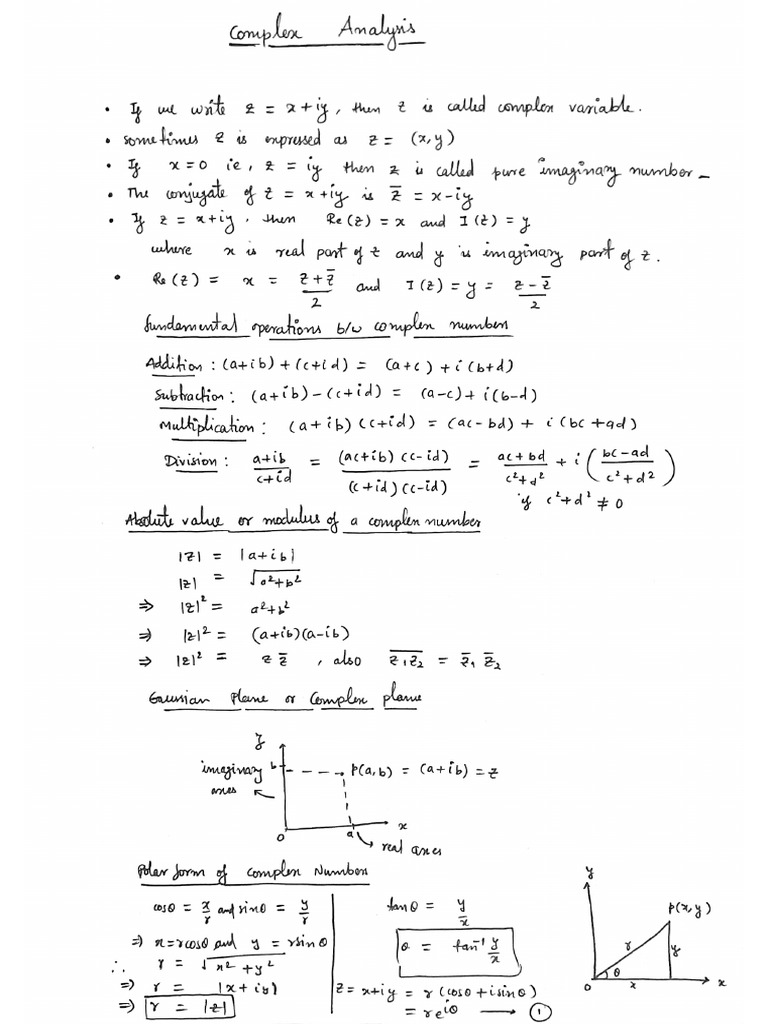 Complex Analysis
• If we write z = x + iy, then z is called complex variable.
• sometimes z is expressed as z = (x, y)
• If x = 0 ie, z = iy then z is called pure imaginary number –
• The conjugate of z = x + iy is z̄ = x - iy
• If z = x + iy, then Re(z) = x and I(z) = y
where x is real part of z and y is imaginary part of z.
• Re(z) = x = (z + z̄)/2 and I(z) = y = (z - z̄)/2
Fundamental operations b/w complex numbers
Addition : (a+ib) + (c+id) = (a+c) + i(b+d)
Subtraction : (a+ib) - (c+id) = (a-c) + i(b-d)
Multiplication : (a+ib)(c+id) = (ac-bd) + i(bc+ad)
Division : (a+ib)/(c+id) = (ac+ib)(c-id)/(c+id)(c-id) = (ac+bd)/(c²+d²) + i((bc-ad)/(c²+d²))
if c²+d² ≠ 0
Absolute value or modulus of a complex number
|z| = |a+ib|
|z| = √(a²+b²)
⇒ |z|² = a²+b²
⇒ |z|² = (a+ib)(a-ib)
⇒ |z|² = z z̄ , also \overline{z₁z₂} = z̄₁ z̄₂
Gaussian Plane or Complex plane
y
imaginary axes
b
P(a,b) = (a+ib) = z
0
a
x
real axes
Polar form of complex Number
cosθ = x/r and sinθ = y/r
⇒ x = rcosθ and y = rsinθ
∴ r = √(x²+y²)
⇒ r = |x+iy|
⇒ r = |z|
tanθ = y/x
θ = tan⁻¹ y/x
z = x+iy = r(cosθ + isinθ)
= re^{iθ} → ①
y
P(x,y)
r
y
θ
0
x
x